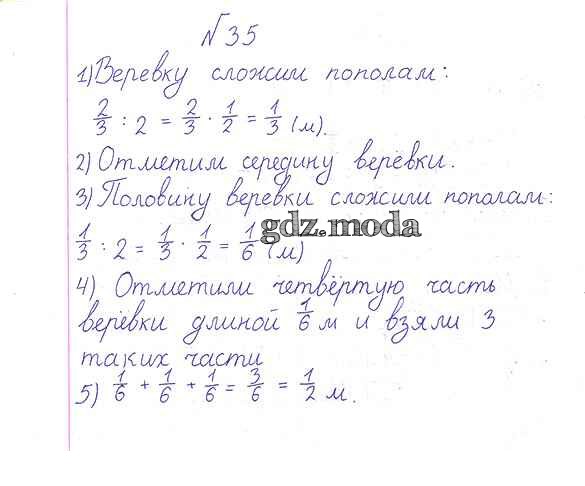 № 35
1) Веревку сложим пополам:
2/3 : 2 = 2/3 · 1/2 = 1/3 (м).
2) Отметим середину веревки.
3) Половину веревки сложили пополам:
1/3 : 2 = 1/3 · 1/2 = 1/6 (м)
gdz.moda
4) Отметили четвёртую часть
верёвки длиной 1/6 м и взяли 3
таких части
5) 1/6 + 1/6 + 1/6 = 3/6 = 1/2 м.